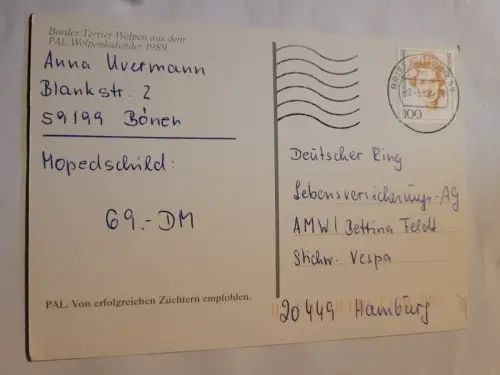 Border Terrier-Welpen aus dem
PAL Welpenkalender 1989
Anna Uvermann
Blankstr. 2
59199 Bönen
Mopedschild:
69.-DM
PAL. Von erfolgreichen Züchtern empfohlen.
100
Deutscher Ring
Lebensversicherungs-AG
AMW/Bettina Feldt
Stichw. Vespa
20449 Hamburg